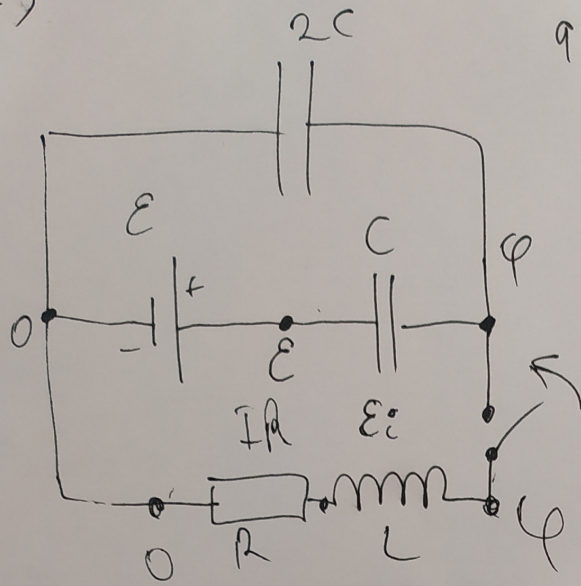 )
2C
9
ℰ
C
+
φ
0
−
ℰ
IR
ℰi
0
R
L
φ